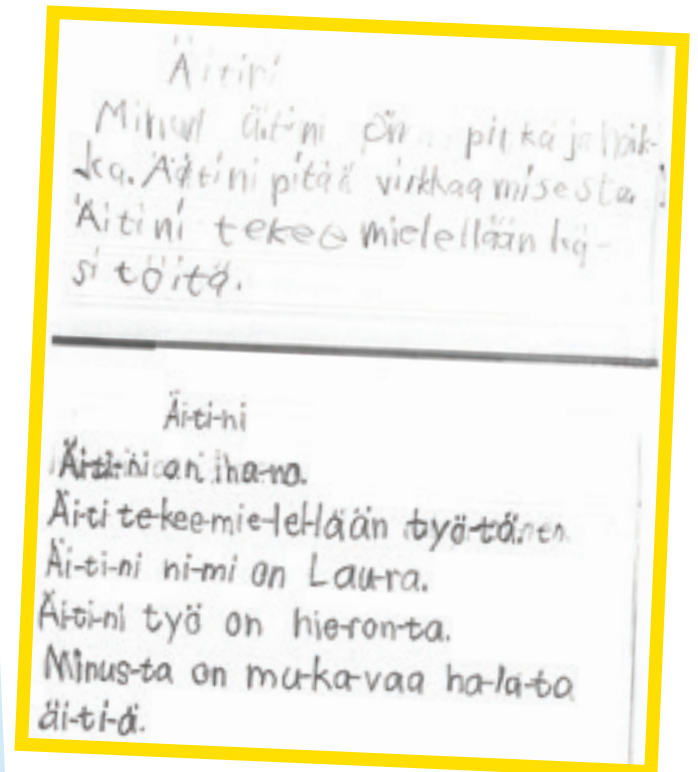 Äitini
Minun äitini on pitkä ja hoik-
ka. Äitini pitää virkkaamisesta.
Äitini tekee mielellään kä-
sitöitä.
Äi-ti-ni
Äi-ti-ni on iha-na.
Äi-ti te-kee-mie-lel-lään työ-tä.
Äi-ti-ni ni-mi on Lau-ra.
Äi-ti-ni työ on hie-ron-ta.
Minus-ta on mu-ka-vaa ha-la-ta
äi-ti-ä.